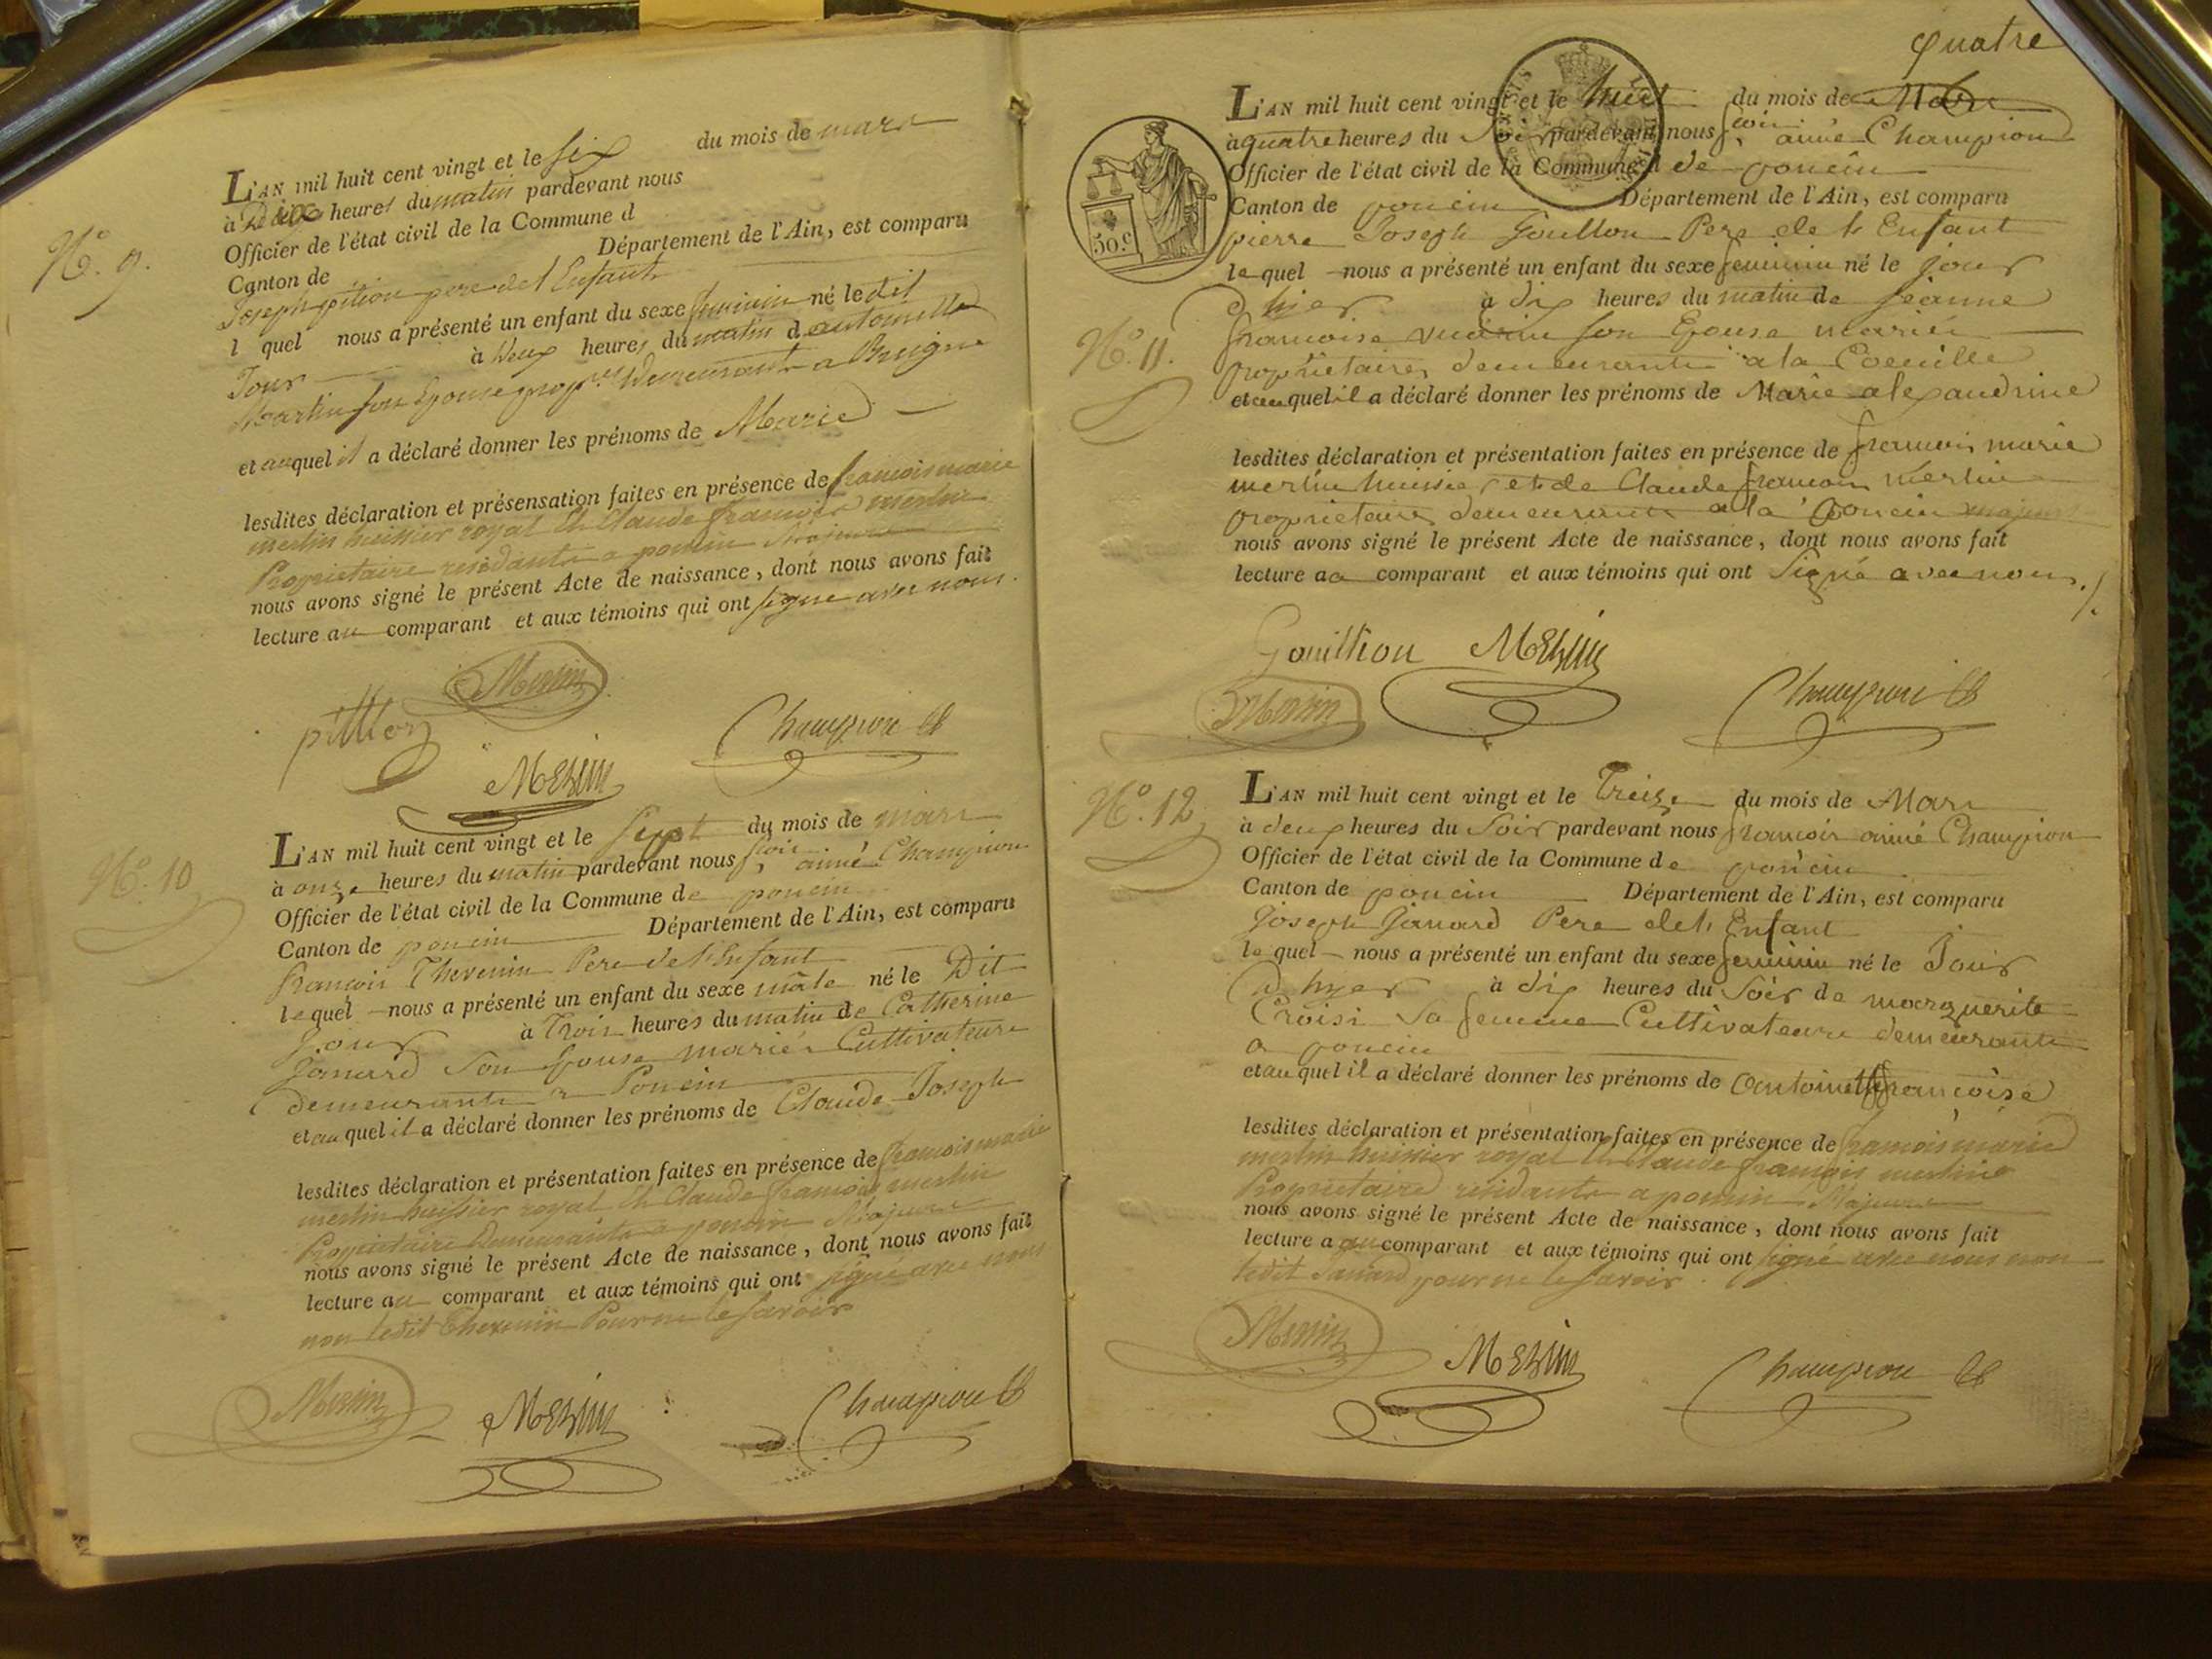 N.° 9.
L'AN mil huit cent vingt et le six du mois de mars
à heures du matin pardevant nous
Officier de l'état civil de la Commune d
Canton de Département de l'Ain, est comparu
Joseph pere de l'Enfant
l quel nous a présenté un enfant du sexe feminin né le dit
Jour à deux heures du matin d antoinette
Martin son Epouse demeurants a
et au quel il a déclaré donner les prénoms de Marie
lesdites déclaration et présensation faites en présence de francois marie
merlin huissier royal Claude francois merlin
Proprietaire residants a poncin Majeurs
nous avons signé le présent Acte de naissance, dont nous avons fait
lecture au comparant et aux témoins qui ont signé avec nous.
Merlin
Champion
Merlin
N.° 10
L'AN mil huit cent vingt et le Sept du mois de mars
à onze heures du matin pardevant nous f.cois aimé Champion
Officier de l'état civil de la Commune de poncin
Canton de poncin Département de l'Ain, est comparu
francois Thevenin Pere de l'Enfant
le quel nous a présenté un enfant du sexe mâle né le Dit
Jour à Trois heures du matin de Catherine
Janard son Epouse mariés Cultivateurs
demeurants a Poncin
et au quel il a déclaré donner les prénoms de Claude Joseph
lesdites déclaration et présentation faites en présence de francois marie
merlin huissier royal Claude francois merlin
Proprietaire demeurants a poncin Majeurs
nous avons signé le présent Acte de naissance, dont nous avons fait
lecture au comparant et aux témoins qui ont signé avec nous
non ledit Thevenin Pour ne le savoir
Merlin Merlin Champion
quatre
50.c
N.° 11.
L'AN mil huit cent vingt et le huit du mois de Mars
à quatre heures du Soir pardevant nous f.cois aimé Champion
Officier de l'état civil de la Commune d de poncin
Canton de poncin Département de l'Ain, est comparu
pierre Joseph Goullon Pere de l'Enfant
le quel nous a présenté un enfant du sexe feminin né le jour
d'hier à dix heures du matin de jeanne
francoise son Epouse mariés
proprietaires demeurants a la
et au quel il a déclaré donner les prénoms de Marie alexandrine
lesdites déclaration et présentation faites en présence de francois marie
merlin huissier et de Claude francois merlin
proprietaires demeurants a poncin majeurs
nous avons signé le présent Acte de naissance, dont nous avons fait
lecture au comparant et aux témoins qui ont Signé avec nous./.
Gouillon Merlin
Merlin Champion
N.° 12
L'AN mil huit cent vingt et le Treize du mois de Mars
à deux heures du Soir pardevant nous francois aimé Champion
Officier de l'état civil de la Commune de poncin
Canton de poncin Département de l'Ain, est comparu
Joseph Janard Pere de l'Enfant
le quel nous a présenté un enfant du sexe feminin né le Jour
D'hyer à dix heures du Soir de marguerite
Croisi Sa femme Cultivateurs demeurants
a poncin
et au quel il a déclaré donner les prénoms de antoinette francoise
lesdites déclaration et présentation faites en présence de francois marie
merlin huissier royal Claude francois merlin
Proprietaire residants a poncin Majeurs
nous avons signé le présent Acte de naissance, dont nous avons fait
lecture a au comparant et aux témoins qui ont signé avec nous non
ledit Janard pour ne le savoir.
Merlin Merlin Champion